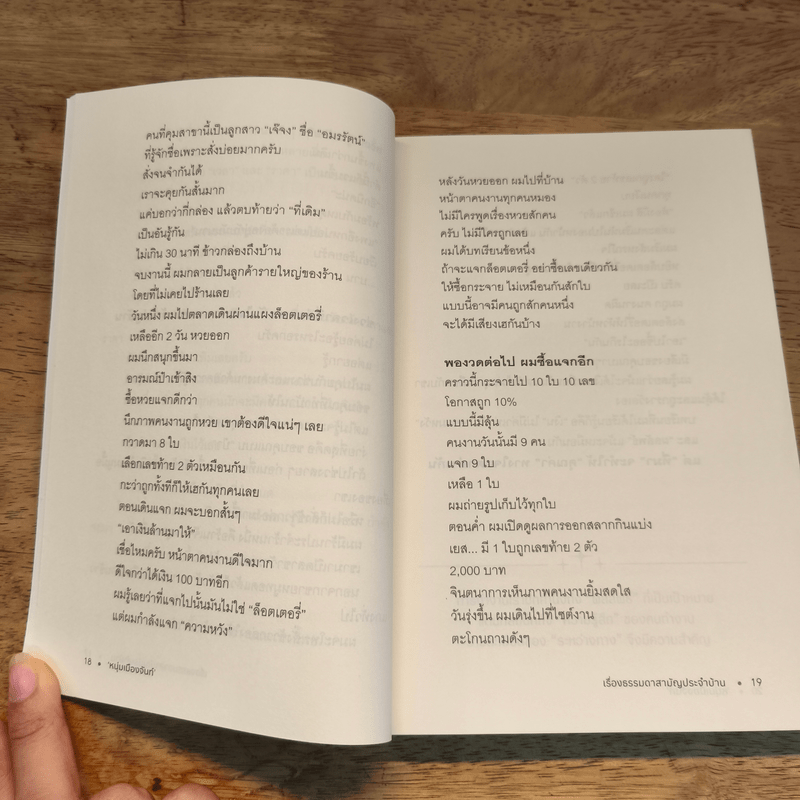 คนที่คุมสาขานี้เป็นลูกสาว “เจ๊จง” ชื่อ “อมรรัตน์”
ที่รู้จักชื่อเพราะสั่งบ่อยมากครับ
สั่งจนจำกันได้
เราจะคุยกันสั้นมาก
แค่บอกว่ากี่กล่อง แล้วตบท้ายว่า “ที่เดิม”
เป็นอันรู้กัน
ไม่เกิน 30 นาที ข้าวกล่องถึงบ้าน
จบงานนี้ ผมกลายเป็นลูกค้ารายใหญ่ของร้าน
โดยที่ไม่เคยไปร้านเลย
วันหนึ่ง ผมไปตลาดเดินผ่านแผงล็อตเตอรี่
เหลืออีก 2 วัน หวยออก
ผมนึกสนุกขึ้นมา
อารมณ์ป๋าเข้าสิง
ซื้อหวยแจกดีกว่า
นึกภาพคนงานถูกหวย เขาต้องดีใจแน่ๆ เลย
กวาดมา 8 ใบ
เลือกเลขท้าย 2 ตัวเหมือนกัน
กะว่าถูกทั้งทีก็ให้เฮกันทุกคนเลย
ตอนเดินแจก ผมจะบอกสั้นๆ
“เอาเงินล้านมาให้”
เชื่อไหมครับ หน้าตาคนงานดีใจมาก
ดีใจกว่าได้เงิน 100 บาทอีก
ผมรู้เลยว่าที่แจกไปนั้นมันไม่ใช่ “ล็อตเตอรี่”
แต่ผมกำลังแจก “ความหวัง”
18 • ‘หนุ่มเมืองจันท์’
หลังวันหวยออก ผมไปที่บ้าน
หน้าตาคนงานทุกคนหมอง
ไม่มีใครพูดเรื่องหวยสักคน
ครับ ไม่มีใครถูกเลย
ผมได้บทเรียนข้อหนึ่ง
ถ้าจะแจกล็อตเตอรี่ อย่าซื้อเลขเดียวกัน
ให้ซื้อกระจาย ไม่เหมือนกันสักใบ
แบบนี้อาจมีคนถูกสักคนหนึ่ง
จะได้มีเสียงเฮกันบ้าง
พองวดต่อไป ผมซื้อแจกอีก
คราวนี้กระจายไป 10 ใบ 10 เลข
โอกาสถูก 10%
แบบนี้มีลุ้น
คนงานวันนั้นมี 9 คน
แจก 9 ใบ
เหลือ 1 ใบ
ผมถ่ายรูปเก็บไว้ทุกใบ
ตอนค่ำ ผมเปิดดูผลการออกสลากกินแบ่ง
เยส... มี 1 ใบถูกเลขท้าย 2 ตัว
2,000 บาท
จินตนาการเห็นภาพคนงานยิ้มสดใส
วันรุ่งขึ้น ผมเดินไปที่ไซต์งาน
ตะโกนถามดังๆ
เรื่องธรรมดาสามัญประจำบ้าน • 19